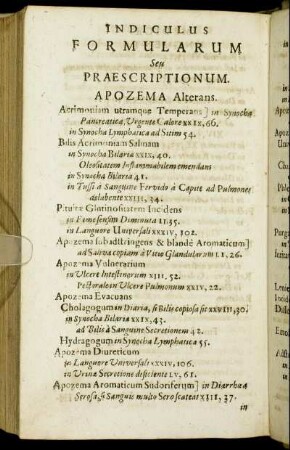 INDICULUS
FORMULARUM
Seu
PRAESCRIPTIONUM.
APOZEMA Alterans.
Acrimoniam utramque Temperans] in Synocha
Pancreatica, Urgente Calore XXIX, 66.
in Synocha Lymphatica ad Sitim 54.
Bilis Acrimoniam Salinam
in Synocha Biliaria XXIX, 40.
Oleositatem Inflammabilem emendans
in Synocha Bilaria 41.
in Tussi à Sanguine Fervido à Capite ad Pulmones
delabente XXIII, 34.
Pituitæ Glutinositatem Incidens
in Fame sensim Diminuta II, 55.
in Languore Universali XXXIV, 102.
Apozema subadstringens & blandè Aromaticum]
ad Salivæ copiam à Vitio Glandularum LI, 26.
Apozema Vulnerarium
in Ulcere Intestinorum XIII, 52.
Pectorale in Ulcere Pulmonum XXIV, 22.
Apozema Evacuans
Cholagogum in Diaria, si Bilis copiosa sit XXVIII, 30.
in Synocha Bilaria XXIX, 43.
ad Bilis à Sanguine Secretionem 42.
Hydragogum in Synocha Lymphatica 55.
Apozema Diureticum
in Languore Universali XXXIV, 106.
in Urinæ Secretione deficiente LV, 61.
Apozema Aromaticum Sudoriferum] in Diarrhœa
Serosa, si Sanguis multo Sero scateat XIII, 37.
in